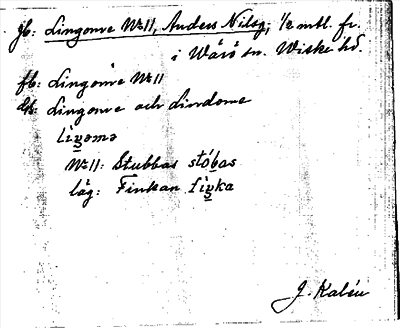 jb: Lingome No 11, Anders Nilsg, 1/2 mtl. fr.
i Wärö sn. Wiske hd.
fb: Lingome No 11
dt: Lingome och Lindome
No 11: Stubbas stóbas
läg: Finkan
J. Kalén